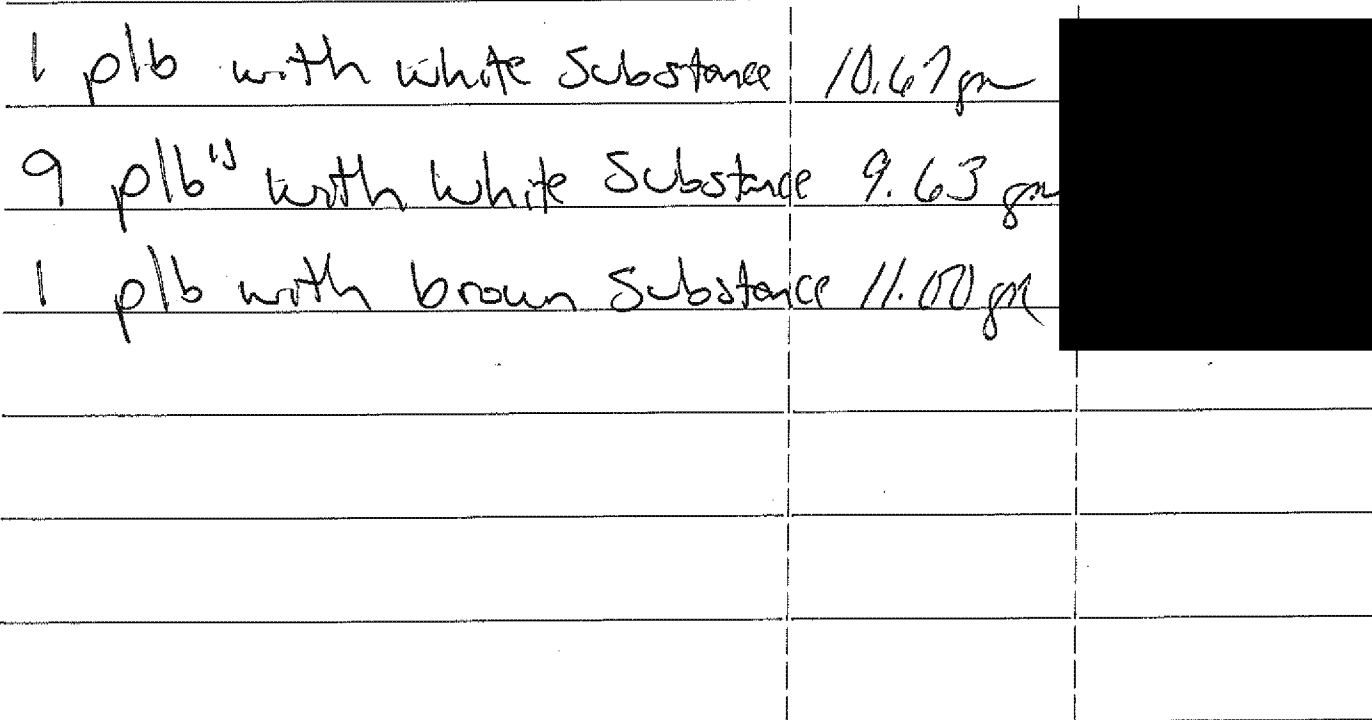 1 plb with white Substance 10.67 gm
9 plb's with white Substance 9.63 gm
1 plb with brown Substance 11.00 gm